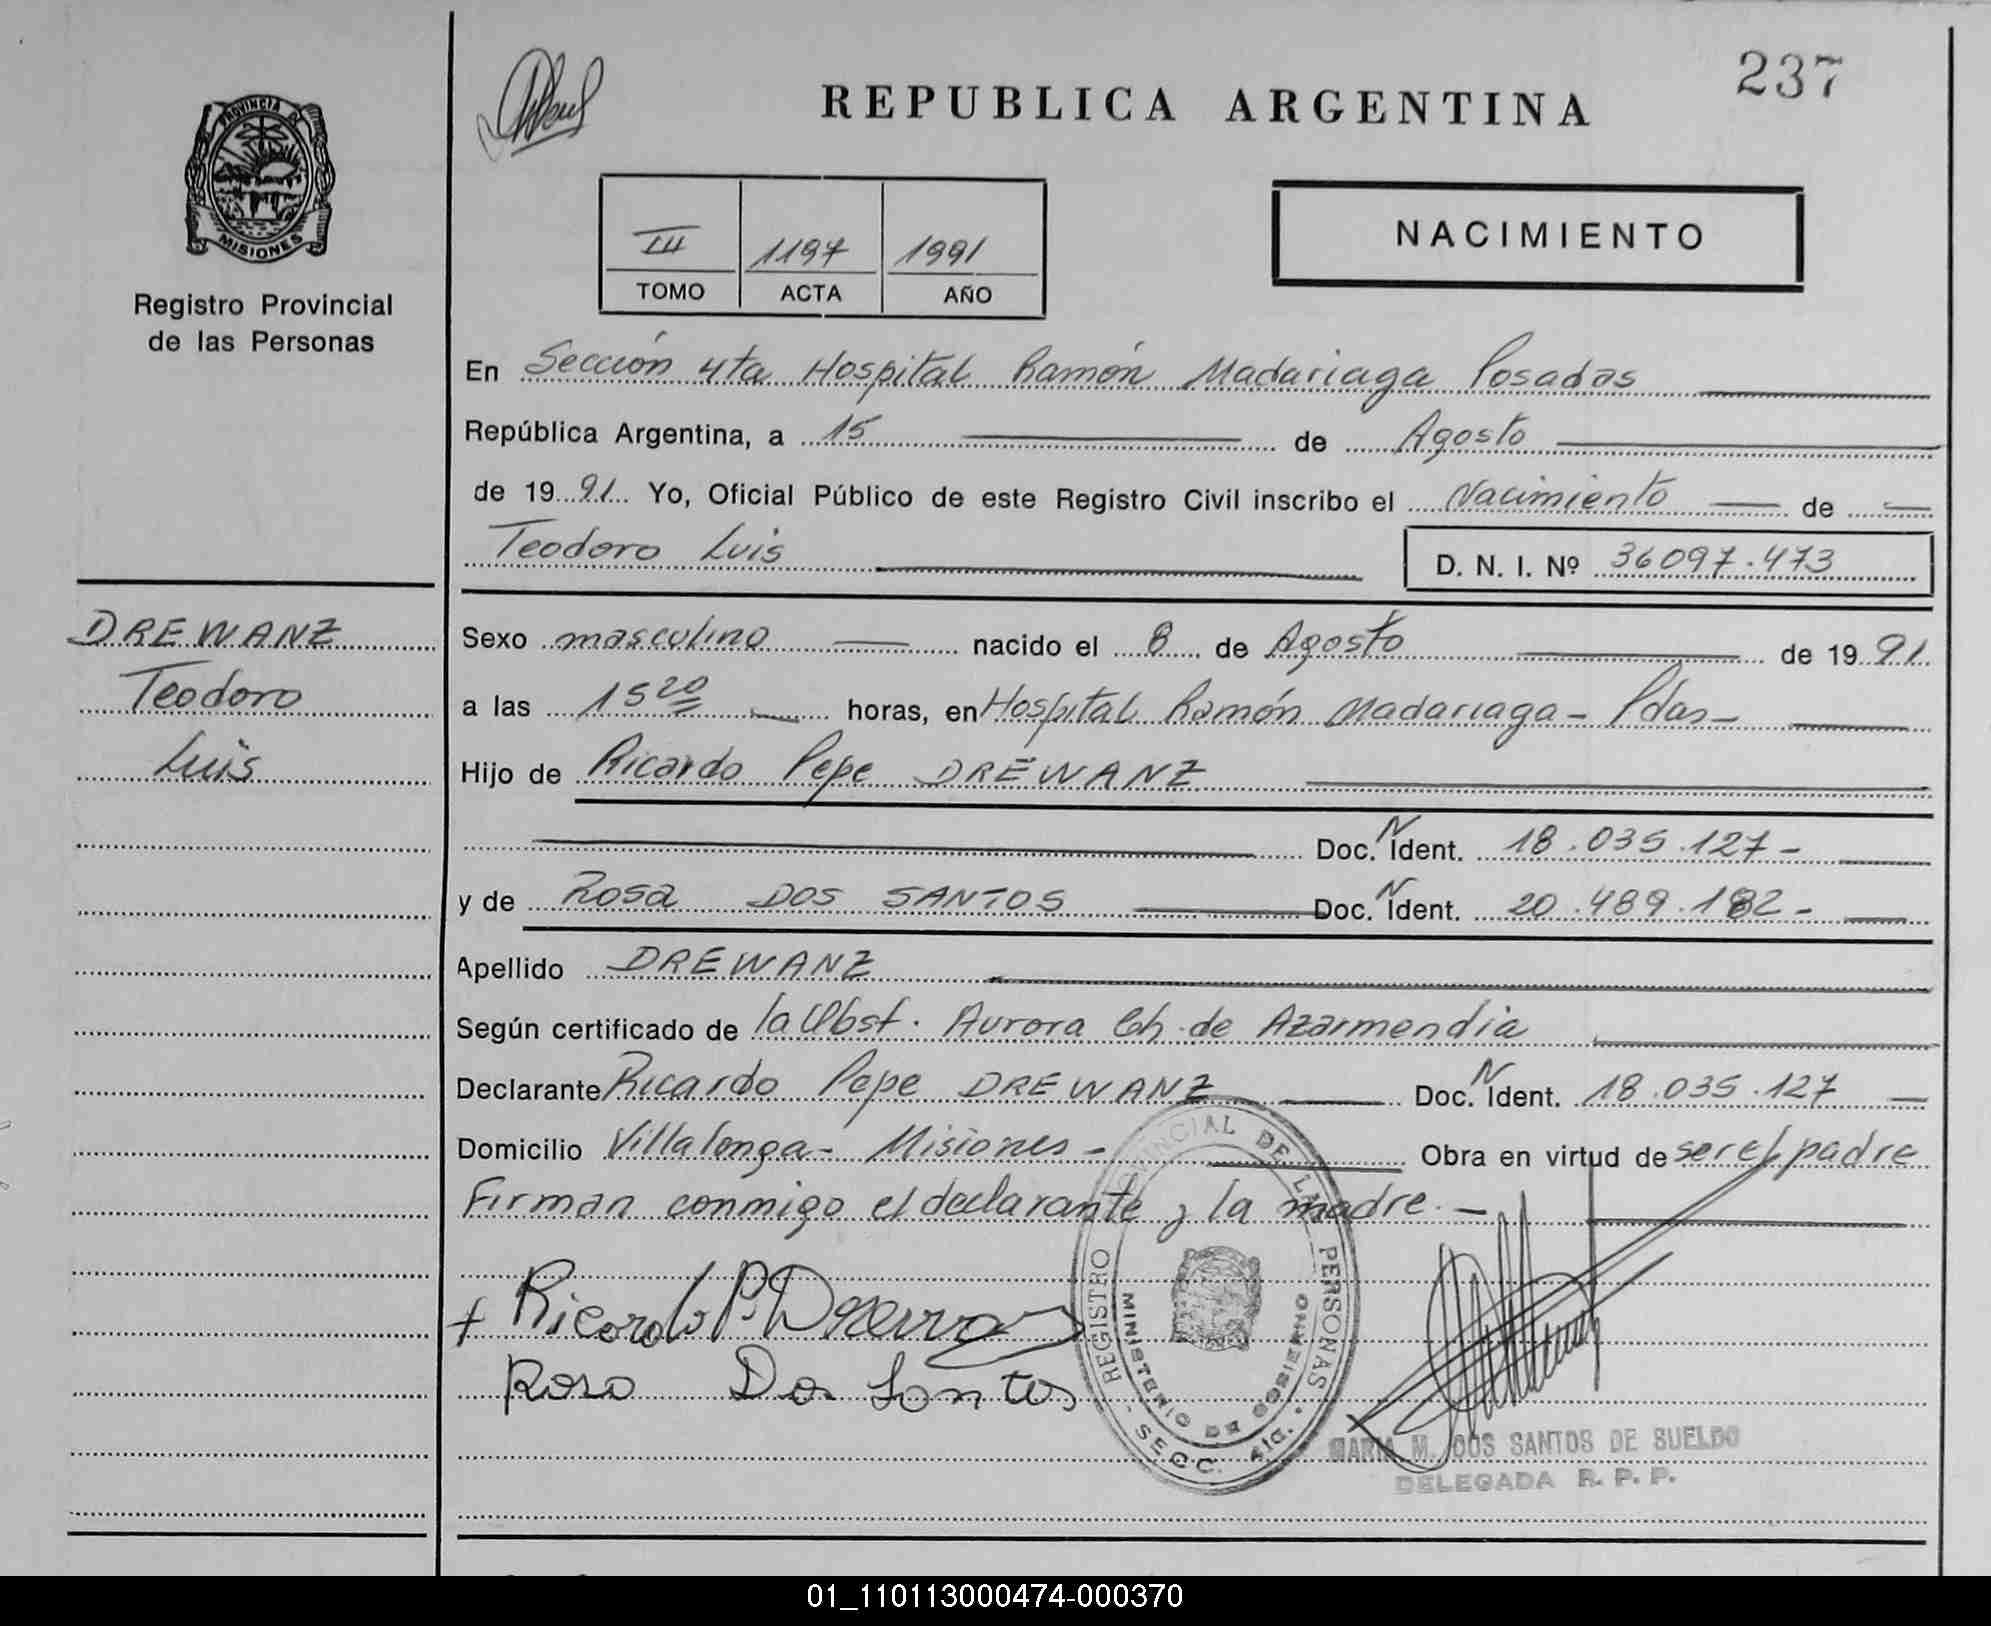 237
REPUBLICA ARGENTINA
PROVINCIA DE
MISIONES
Registro Provincial
de las Personas
III 1197 1991
TOMO ACTA AÑO
NACIMIENTO
En Sección 4ta Hospital Ramón Madariaga Posadas
República Argentina, a 15 de Agosto
de 1991 Yo, Oficial Público de este Registro Civil inscribo el Nacimiento de
Teodoro Luis
D. N. I. Nº 36097.473
DREWANZ
Teodoro
Luis
Sexo masculino nacido el 8 de Agosto de 1991
a las 15 20 horas, en Hospital Ramón Madariaga - Pdas -
Hijo de Ricardo Pepe DREWANZ
Doc. N Ident. 18.035.127 -
y de Rosa DOS SANTOS Doc. N Ident. 20.489.182 -
Apellido DREWANZ
Según certificado de la Obst. Aurora Ch. de Azarmendia
Declarante Ricardo Pepe DREWANZ Doc. N Ident. 18.035.127
Domicilio Villalonga - Misiones - Obra en virtud de ser el padre
Firman conmigo el declarante y la madre. -
+ Ricardo P. Drewanz
Rosa Dos Santos
REGISTRO PROVINCIAL DE LAS PERSONAS
MINISTERIO DE GOBIERNO
SECC. 4ta.
MARIA M. DOS SANTOS DE SUELDO
DELEGADA R. P. P.
01_110113000474-000370